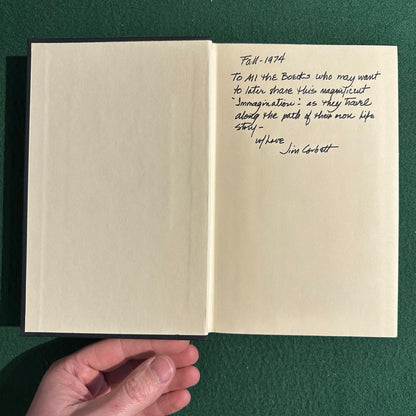 Fall - 1974
To All the Boecks who may want
to later share this magnificent
"Immagination" as they travel
along the path of their own life
story -
w/Love
Jim Corbett